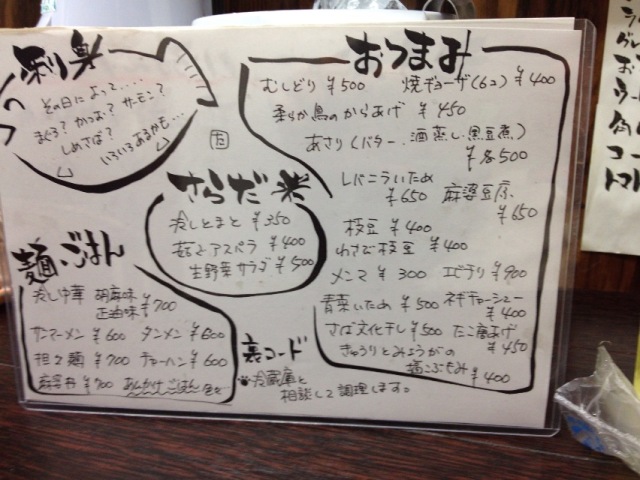 刺身
その日によって....
まぐろ? かつお? サーモン?
しめさば?
いろいろあるかも...
おつまみ
むしどり ¥500 焼ギョーザ(6コ) ¥400
柔らか鳥のからあげ ¥450
あさり(バター、酒蒸し、黒豆煮)
¥各500
レバニラいため
¥650
麻婆豆腐
¥650
枝豆 ¥400
わさび枝豆 ¥400
メンマ ¥300 エビチリ ¥900
青菜いため ¥500 ネギチャーシュー
¥400
さば文化干し ¥500 たこ唐あげ
¥450
きゅうりとみょうがの
塩こぶもみ ¥400
さらだ
冷しとまと ¥350
茹でアスペラ ¥400
生野菜サラダ ¥500
麺・ごはん
冷し中華 胡麻味
正油味 ¥700
サンマーメン ¥600 タンメン ¥600
担々麺 ¥700 チャーハン ¥600
麻婆丼 ¥700 あんかけごはん
裏コード
冷蔵庫と
相談して調理します。